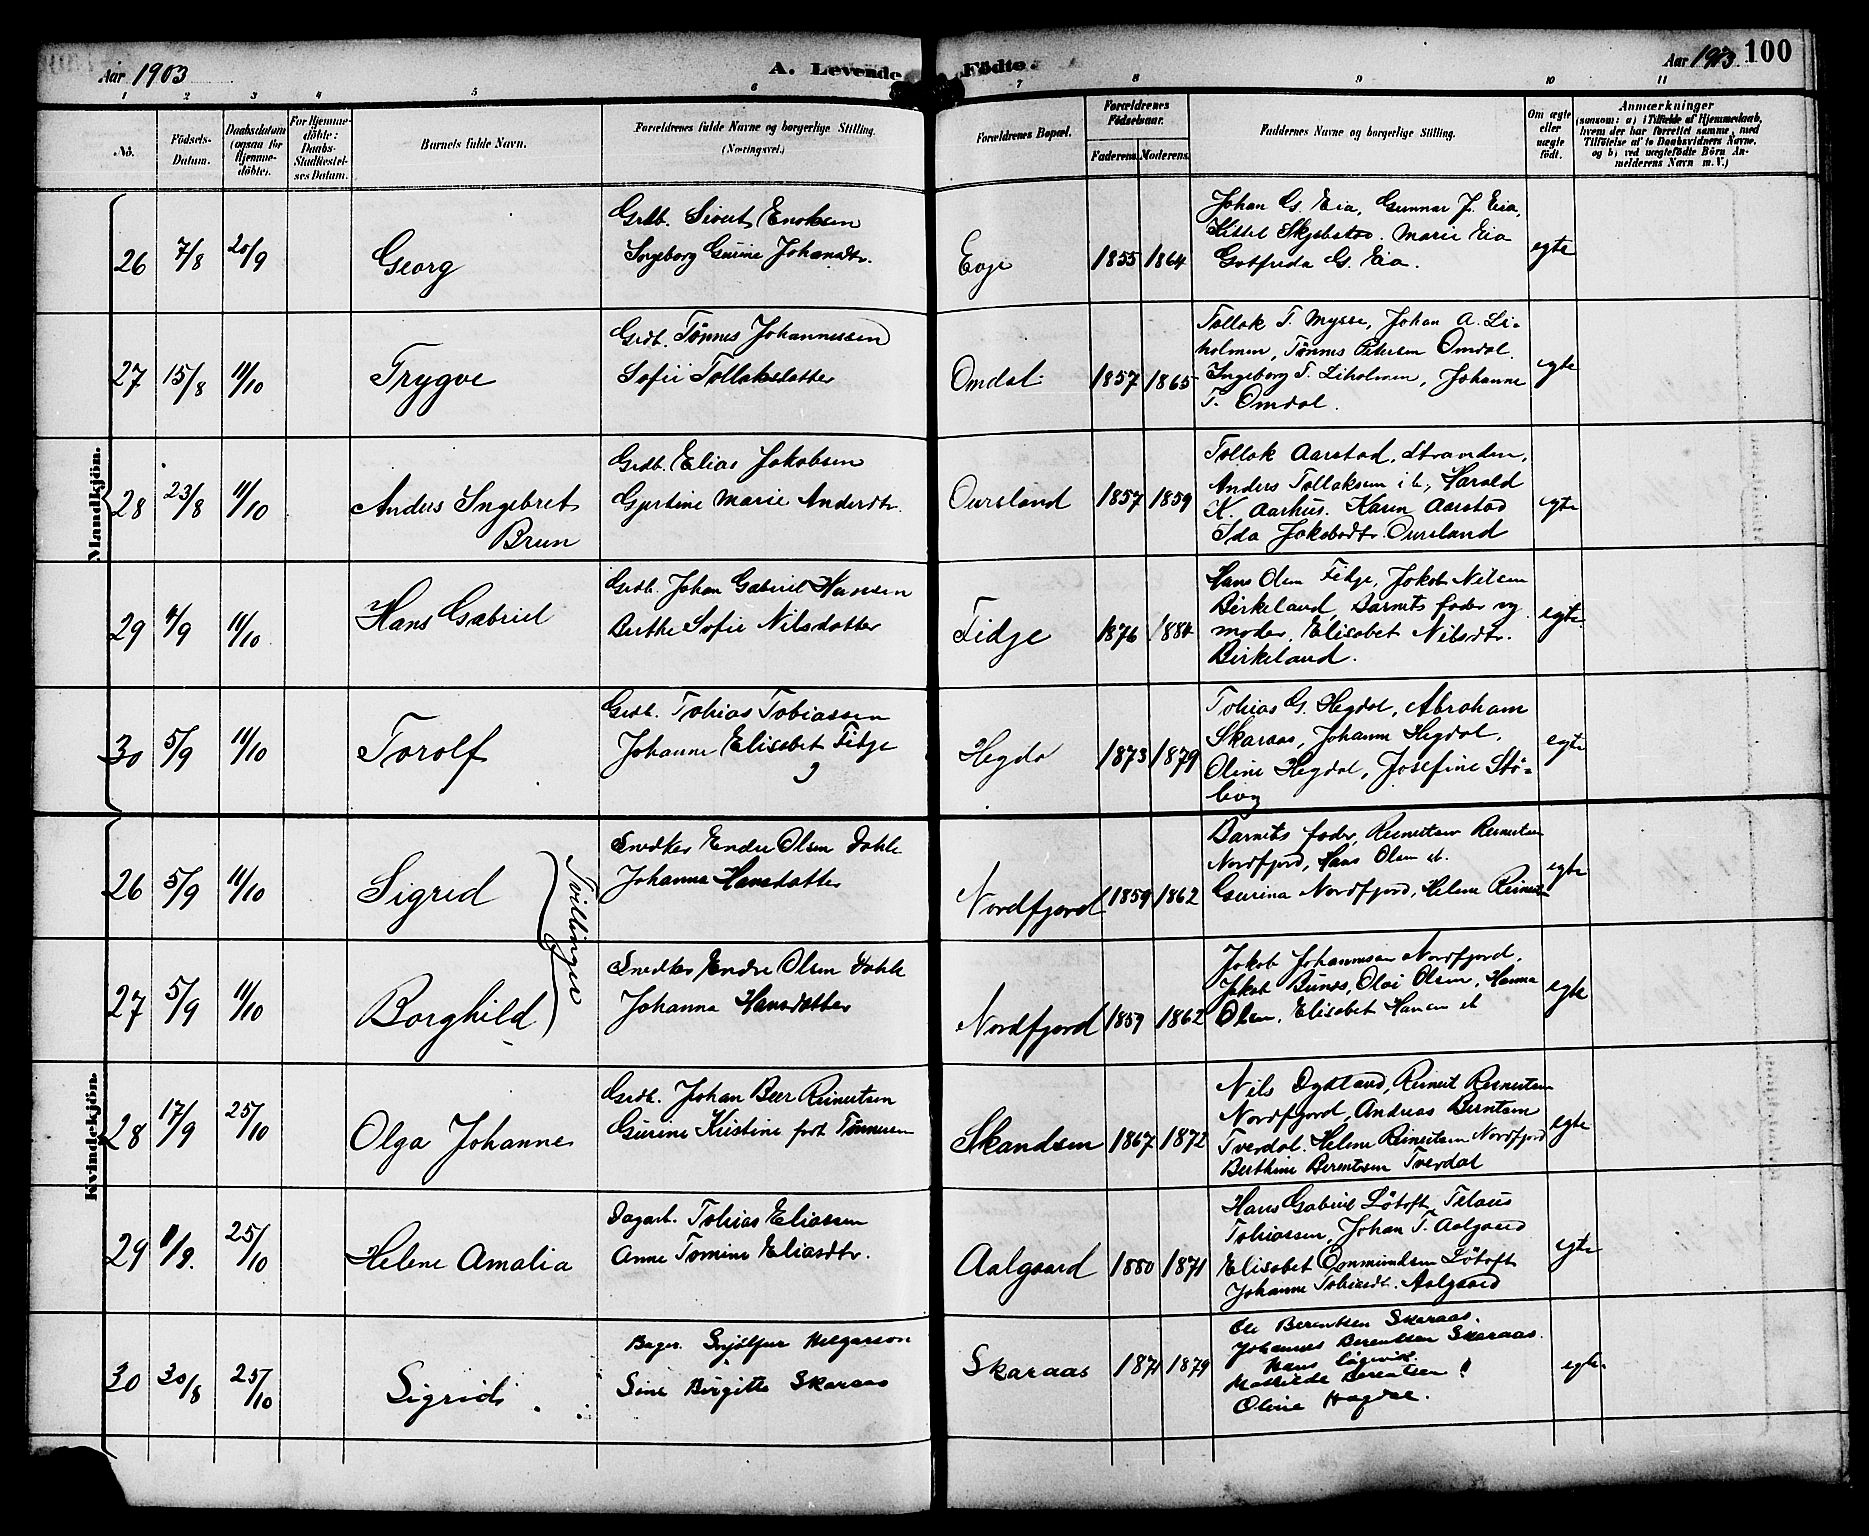 Aar 1903
A. Levende Födte.
Aar 1903
100
1 2 3 4 5 6 7 8 9 10 11
No.
Födsels-
Datum.
Daabsdatum
(ogsaa for
Hjemme-
döbte).
For Hjemme-
döbte:
Daabs-
Stadfæstel-
ses Datum.
Barnets fulde Navn.
Forældrenes fulde Navne og borgerlige Stilling.
(Næringsvei.)
Forældrenes Bopæl.
Forældrenes
Födselsaar.
Faderens. Moderens.
Faddernes Navne og borgerlige Stilling.
Om ægte
eller
uægte
födt.
Anmærkninger
(saasom: a) i Tilfælde af Hjemmedaab,
hvem der har forrettet samme, med
Tilföielse af to Daabsvidners Navne,
og b) ved uægtefödte Börn An-
melderens Navn m. V.)
Mandkjön.
26 7/8 20/9 Georg
Grdb. Sivert Enoksen
Ingeborg Gurine Johansdtr.
Eoje 1855 1864
Johan G. Eia, Gunnar J. Eia,
Kittel Skjebstad. Marie Eia
Gotfreda G. Eia.
egte
27 15/8 11/10 Trygve
Grdb. Tönnes Johannessen
Sofie Tollaksdatter
Omdal 1857 1865
Tollak T. Mysse, Johan A. Li-
holmen, Tönnes Petersen Omdal.
Ingeborg T. Liholmen, Johanne
T. Omdal.
egte
28 23/8 11/10 Anders Ingebret
Brun
Grdb. Elias Jakobsen
Gjertine Marie Andersdtr.
Oursland 1857 1859
Tollak Aarstad, Stranden,
Anders Tollaksen ib., Harald
K. Aarhus. Karen Aarstad
Ida Jakobsdtr. Oursland
egte
29 4/9 11/10 Hans Gabriel
Grdb. Johan Gabriel Hansen
Berthe Sofie Nilsdatter
Fidje 1876 1884
Hans Olsen Fidje, Jakob Nilsen
Birkeland, Barnets fader og
moder, Elisabet Nilsdtr.
Birkeland.
egte
30 5/9 11/10 Torolf
Grdb. Tobias Tobiassen
Johanne Elisabet Fidje
Hegdal 1873 1879
Tobias G. Hegdal, Abraham
Skaraas, Johanne Hegdal,
Oline Hegdal, Josefine Stö-
Kvindekjön.
26 5/9 11/10 Sigrid
Tvillinger
Snedker Endre Olsen Dahle
Johanna Hansdatter
Nordfjord 1859 1862
Barnets fader, Reinertsen
Nordfjord, Hans Olsen ib.
Gurina Nordfjord, Helene
egte
27 5/9 11/10 Borghild
Snedker Endre Olsen Dahle
Johanna Hansdatter
Nordfjord 1859 1862
Jakob Johannesen Nordfjord,
Jakob Bunes, Olai Olsen, Hanna
Olsen, Elisabet Hansen ib
egte
28 17/9 25/10 Olga Johanne
Grdb. Johan Beer Reinertsen
Gurine Kristine født Tönnesen
Skandsen 1867 1872
Nils Dydland, Reinert Reinertsen
Nordfjord, Andreas Berntsen
Tverdal. Helene Reinertsen Nordfjord
Berthine Berentsen Tverdal
egte
29 11/9. 25/10 Helene Amalia
Dagarb. Tobias Eliassen
Anne Tomine Eliasdtr.
Aalgaard 1880 1871
Hans Gabriel Løtoft,
Tobiassen, Johan T. Aalgaard
Elisabet Ommundsen Løtoft
Johanne Tobiasdt. Aalgaard
egte
30 30/8 25/10 Sigrid
Bager. Helgason
Sine Birgitte Skaraas
Skaraas 1871 1879
Ole Berentsen Skaraas.
Johannes Berentsen Skaraas.
Hans
Mathilde Berentsen "
Oline
egte